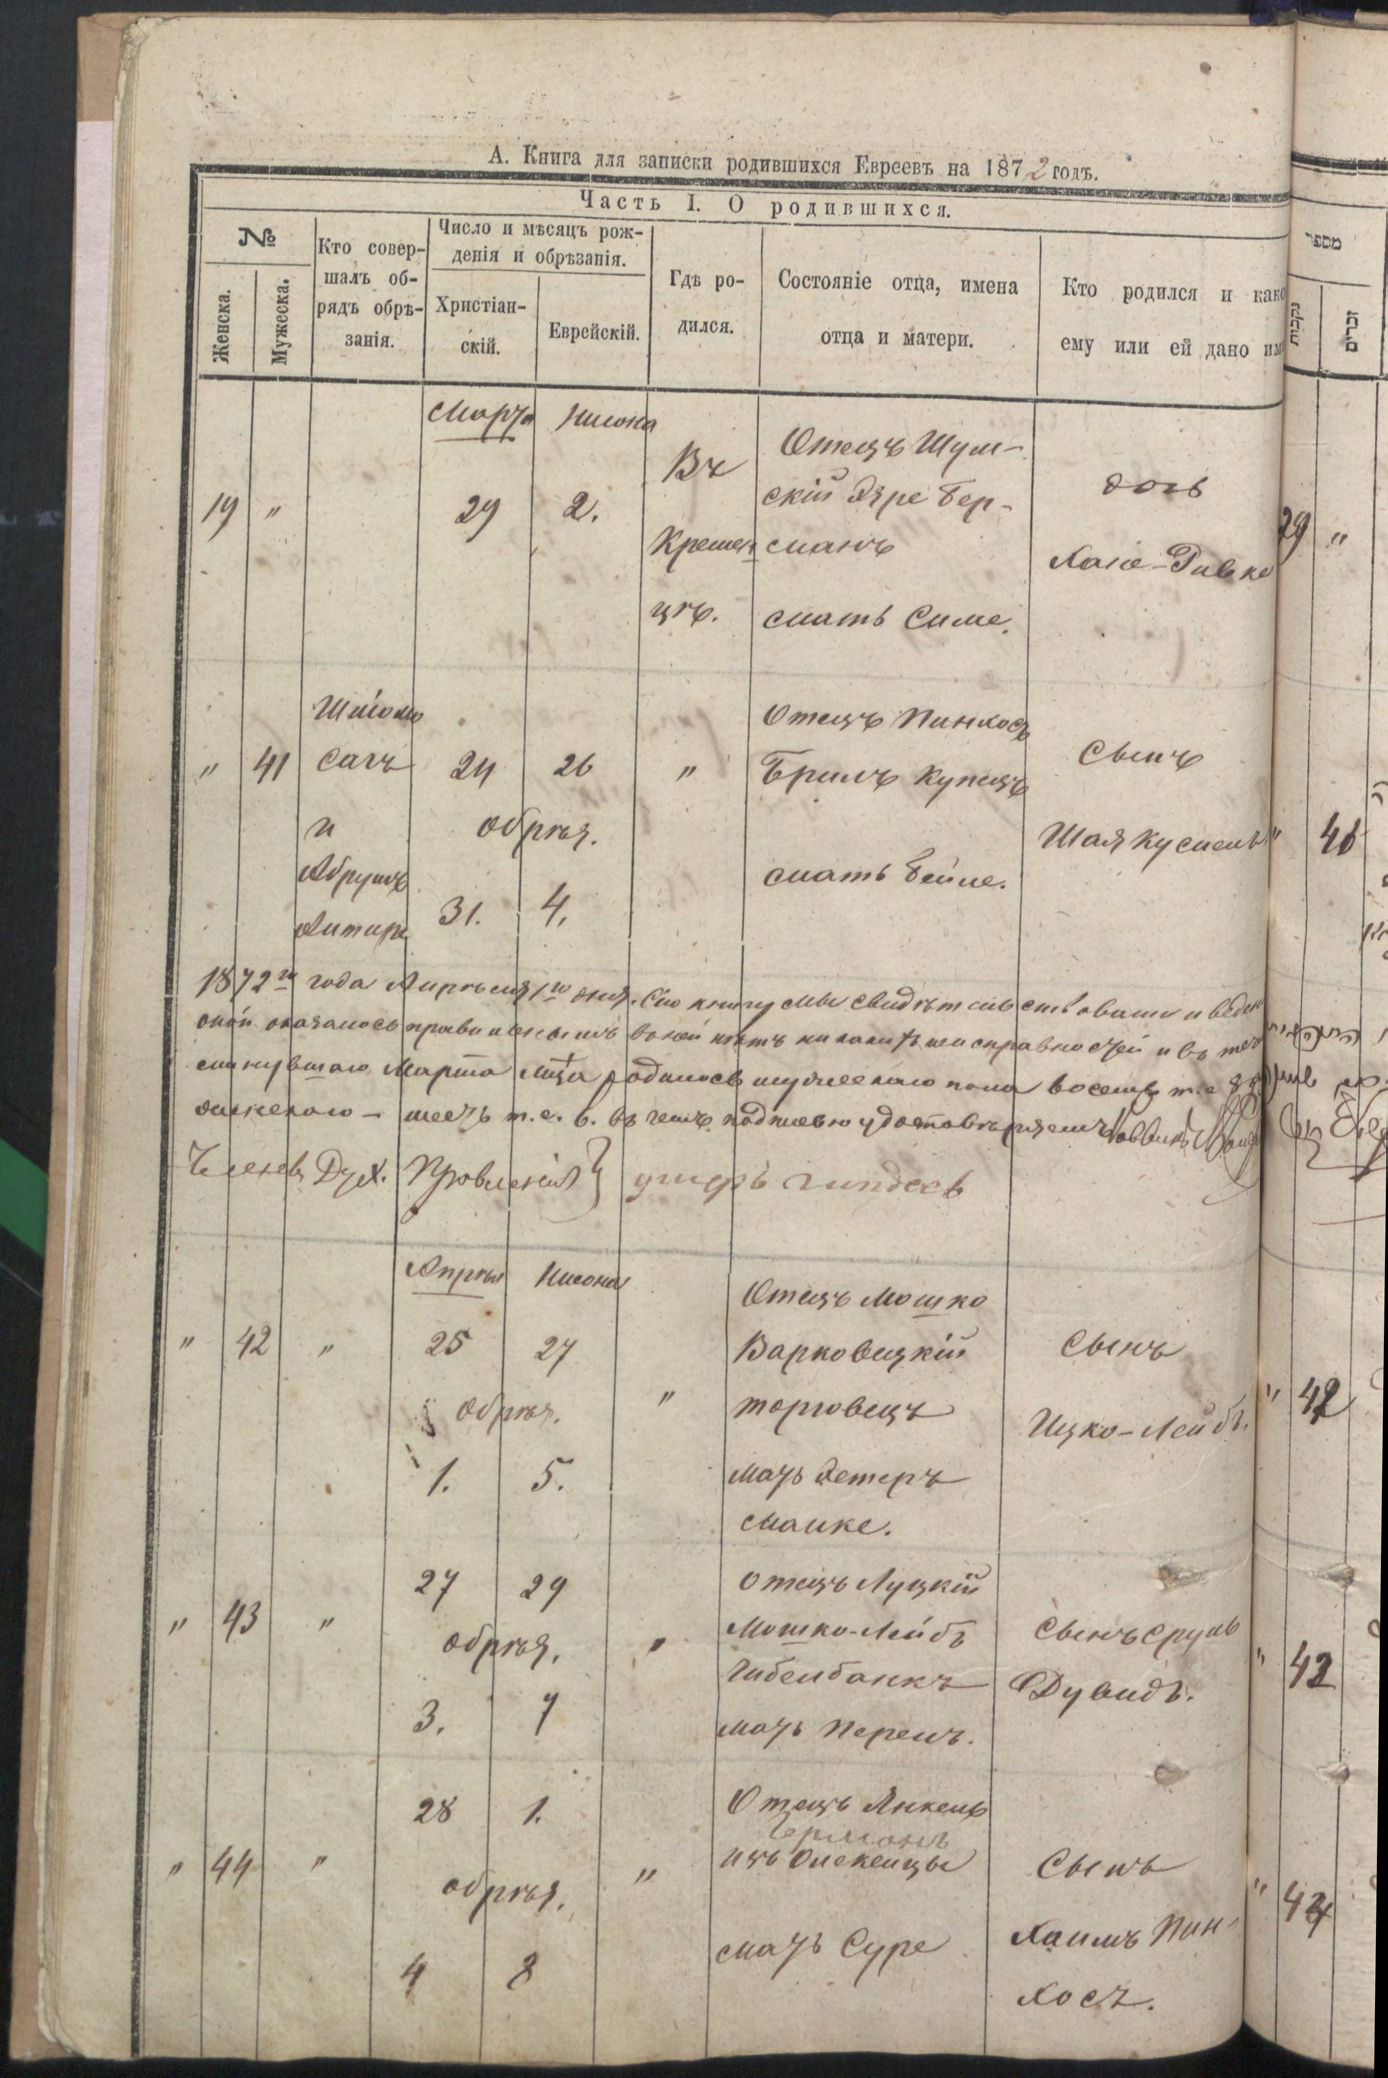 А. Книга для записки родившихся Евреевъ на 1872 годъ.
Часть I. О родившихся.
№
Женска.
Мужеска.
Кто совер-
шалъ об-
рядъ обрѣ-
занія.
Число и мѣсяцъ рож-
денія и обрѣзанія.
Христіан-
скій.
Еврейскій.
Гдѣ ро-
дился.
Состояніе отца, имена
отца и матери.
Кто родился и како
ему или ей дано им
מספר
נקבות
זכרים
Марта Нисона
19 " 29 2.
Въ
Кремен
цѣ.
Отецъ Шум-
скій Эзре Бер-
манъ
мать Симе.
дочь
Хане-Ривке
29 "
" 41
Шліомо
Сачъ
и
Абрумъ
24 26
обрѣз.
31. 4.
"
Отецъ Пинхосъ
Бримъ Купецъ
мать Бейле.
Сынъ
Шая
" 41
1872го года Апрѣля 1го дня. Сію книгу мы свидѣтельствовали и веден
оной оказалось правильнымъ въ ней нѣтъ никакихъ неисправностей и въ теч
минувшаго Марта мѣсяца родилось мужескаго пола восемь т.е. 8
женскаго — шесть т.е. 6. въ чемъ подписью удостовѣряемъ Раввинъ
Членъ Дух. Правленія}
Апрѣля Нисона
" 42 " 25 27
обрѣз.
1. 5.
"
Отецъ Мошко
Варковецкій
торговецъ
мать Эстеръ
Малке.
Сынъ
Ицко-Лейбъ.
" 42
" 43 " 27 29
обрѣз.
3. 7
"
отецъ Луцкій
Мошко-Лейбъ
мать Перель.
Сынъ Сруль
Дувидъ.
" 43
" 44 " 28 1.
обрѣз.
4 8
"
Отецъ Янкель
изъ Олексинцы
мать Суре
Сынъ
Хаимъ Пин-
хосъ.
" 44